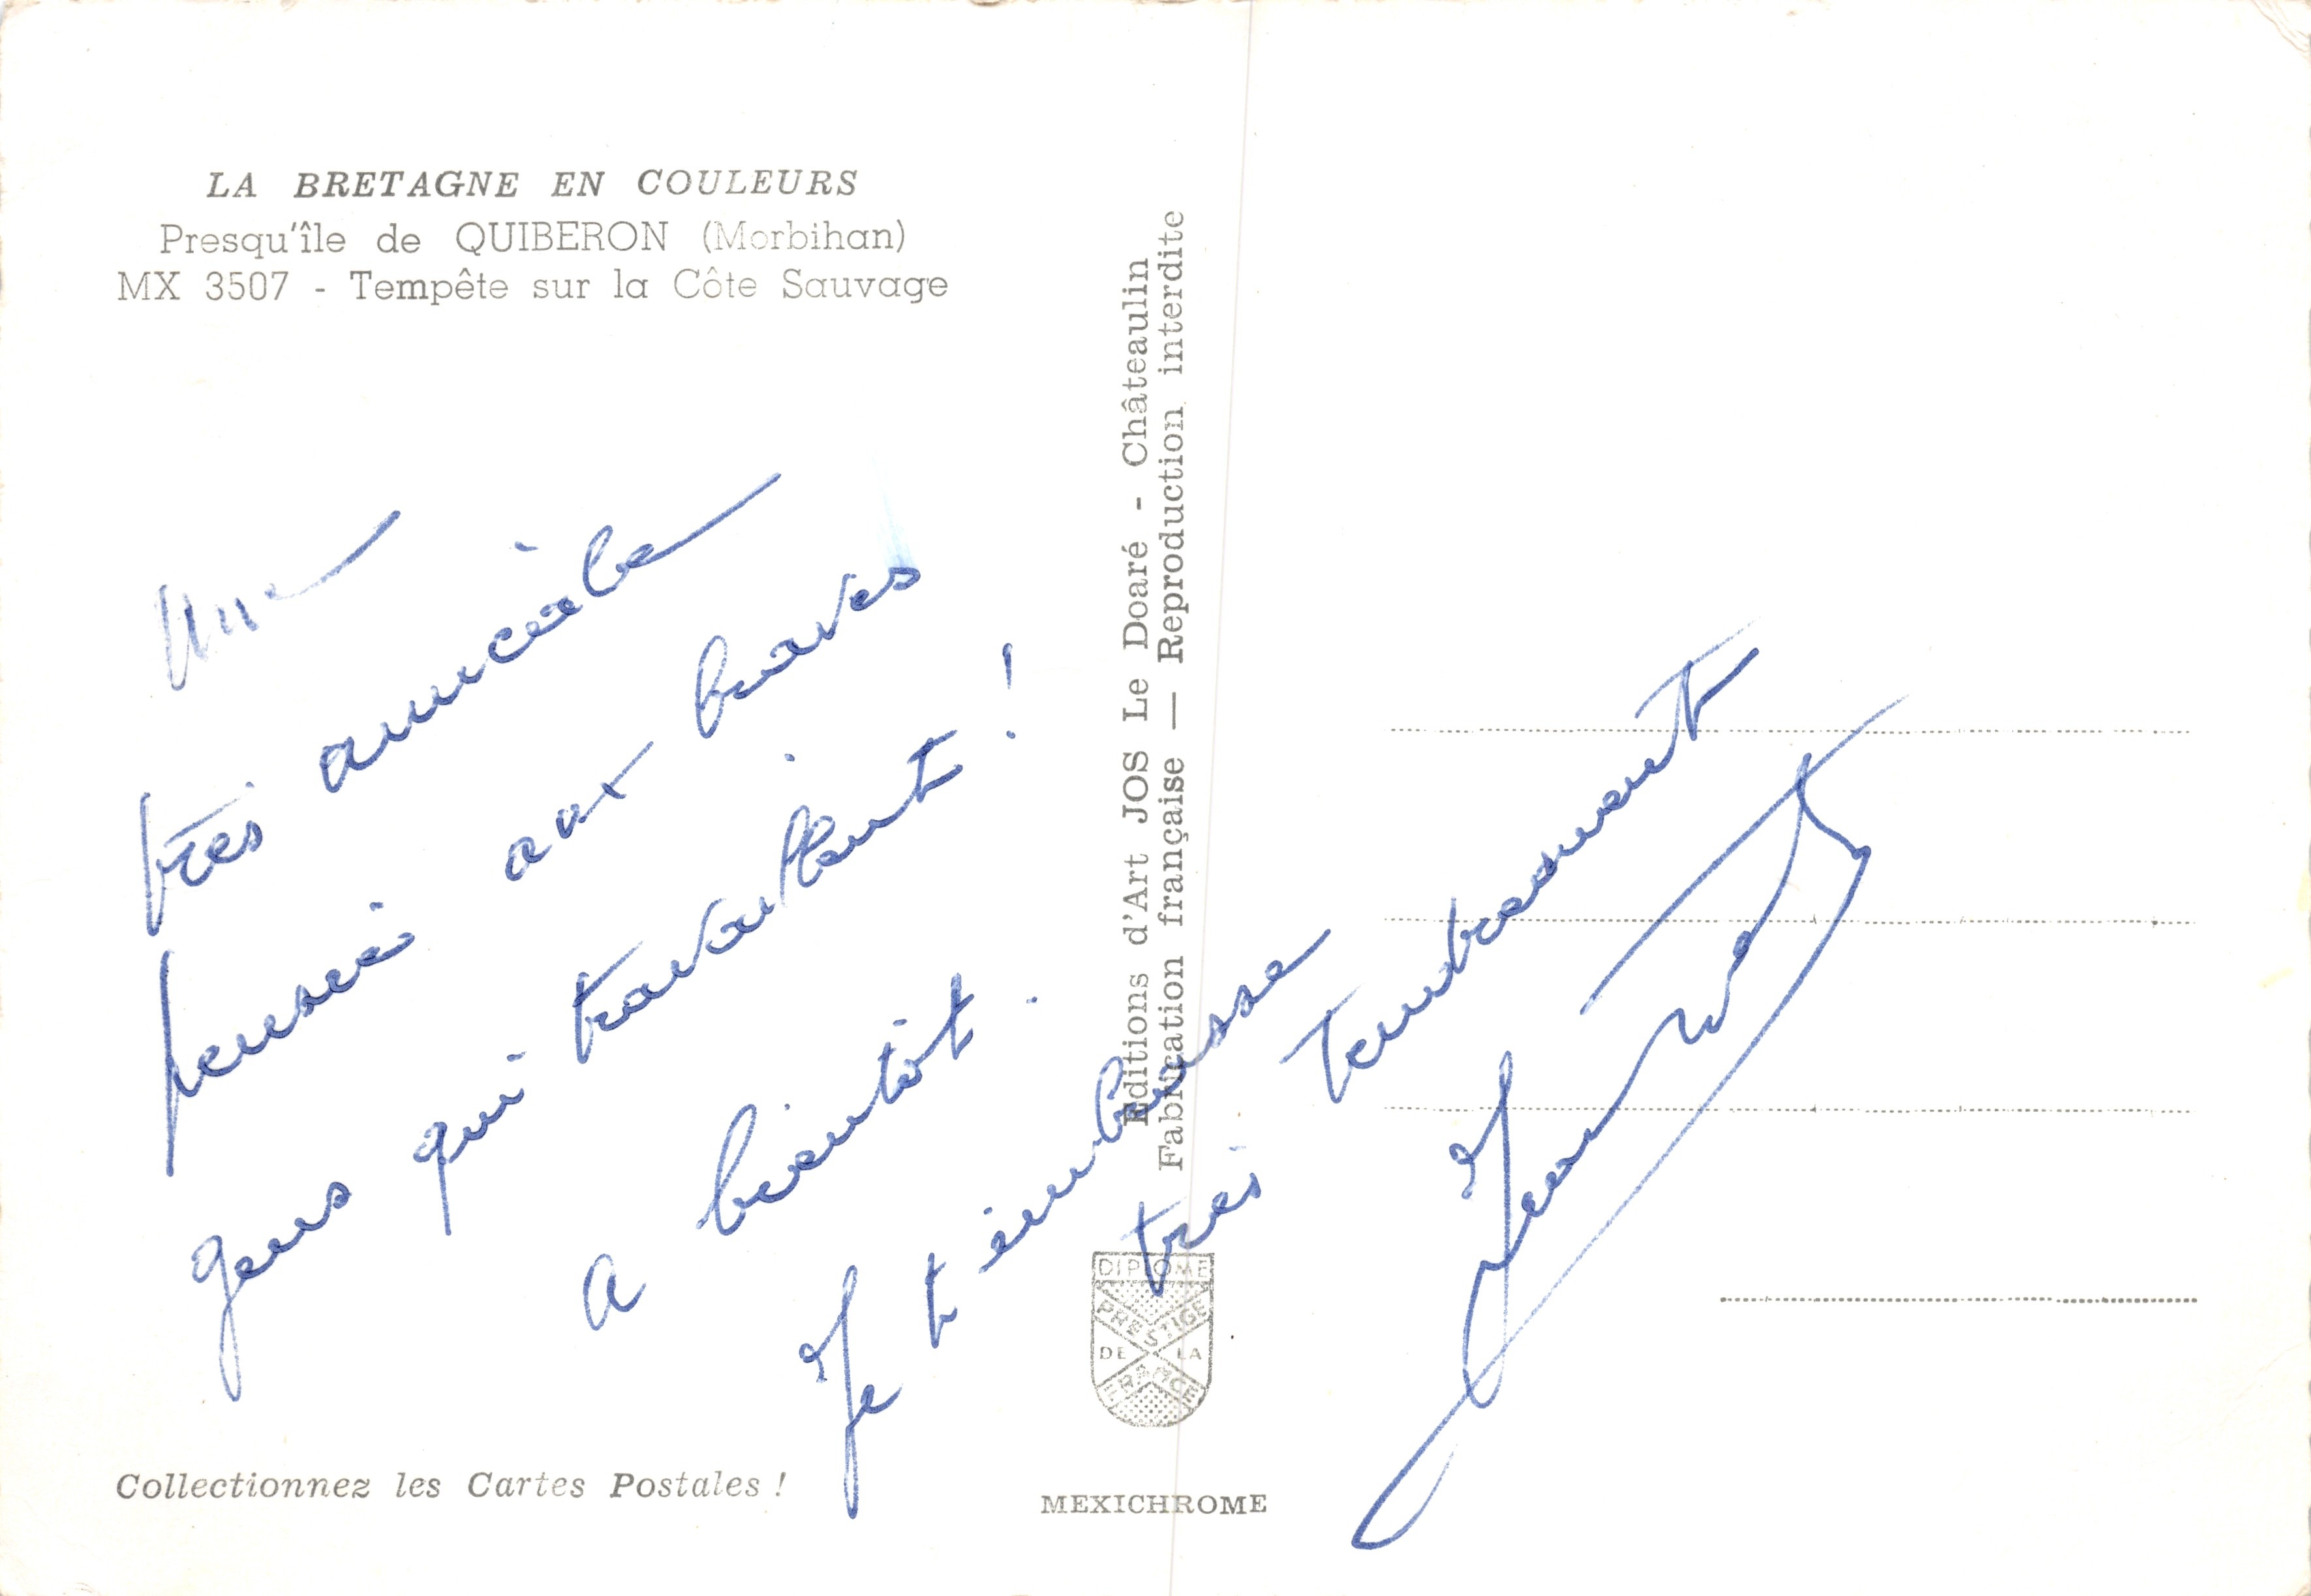 LA BRETAGNE EN COULEURS
Presqu'île de QUIBERON (Morbihan)
MX 3507 - Tempête sur la Côte Sauvage
Une
très amicale
pensée aux braves
gens qui travaillent !
A bientôt.
Je t'embrasse
très tendrement
Collectionnez les Cartes Postales !
Editions d'Art JOS Le Doaré - Châteaulin
Fabrication française — Reproduction interdite
DIPLOME
PRESTIGE
DE LA
FRANCE
MEXICHROME